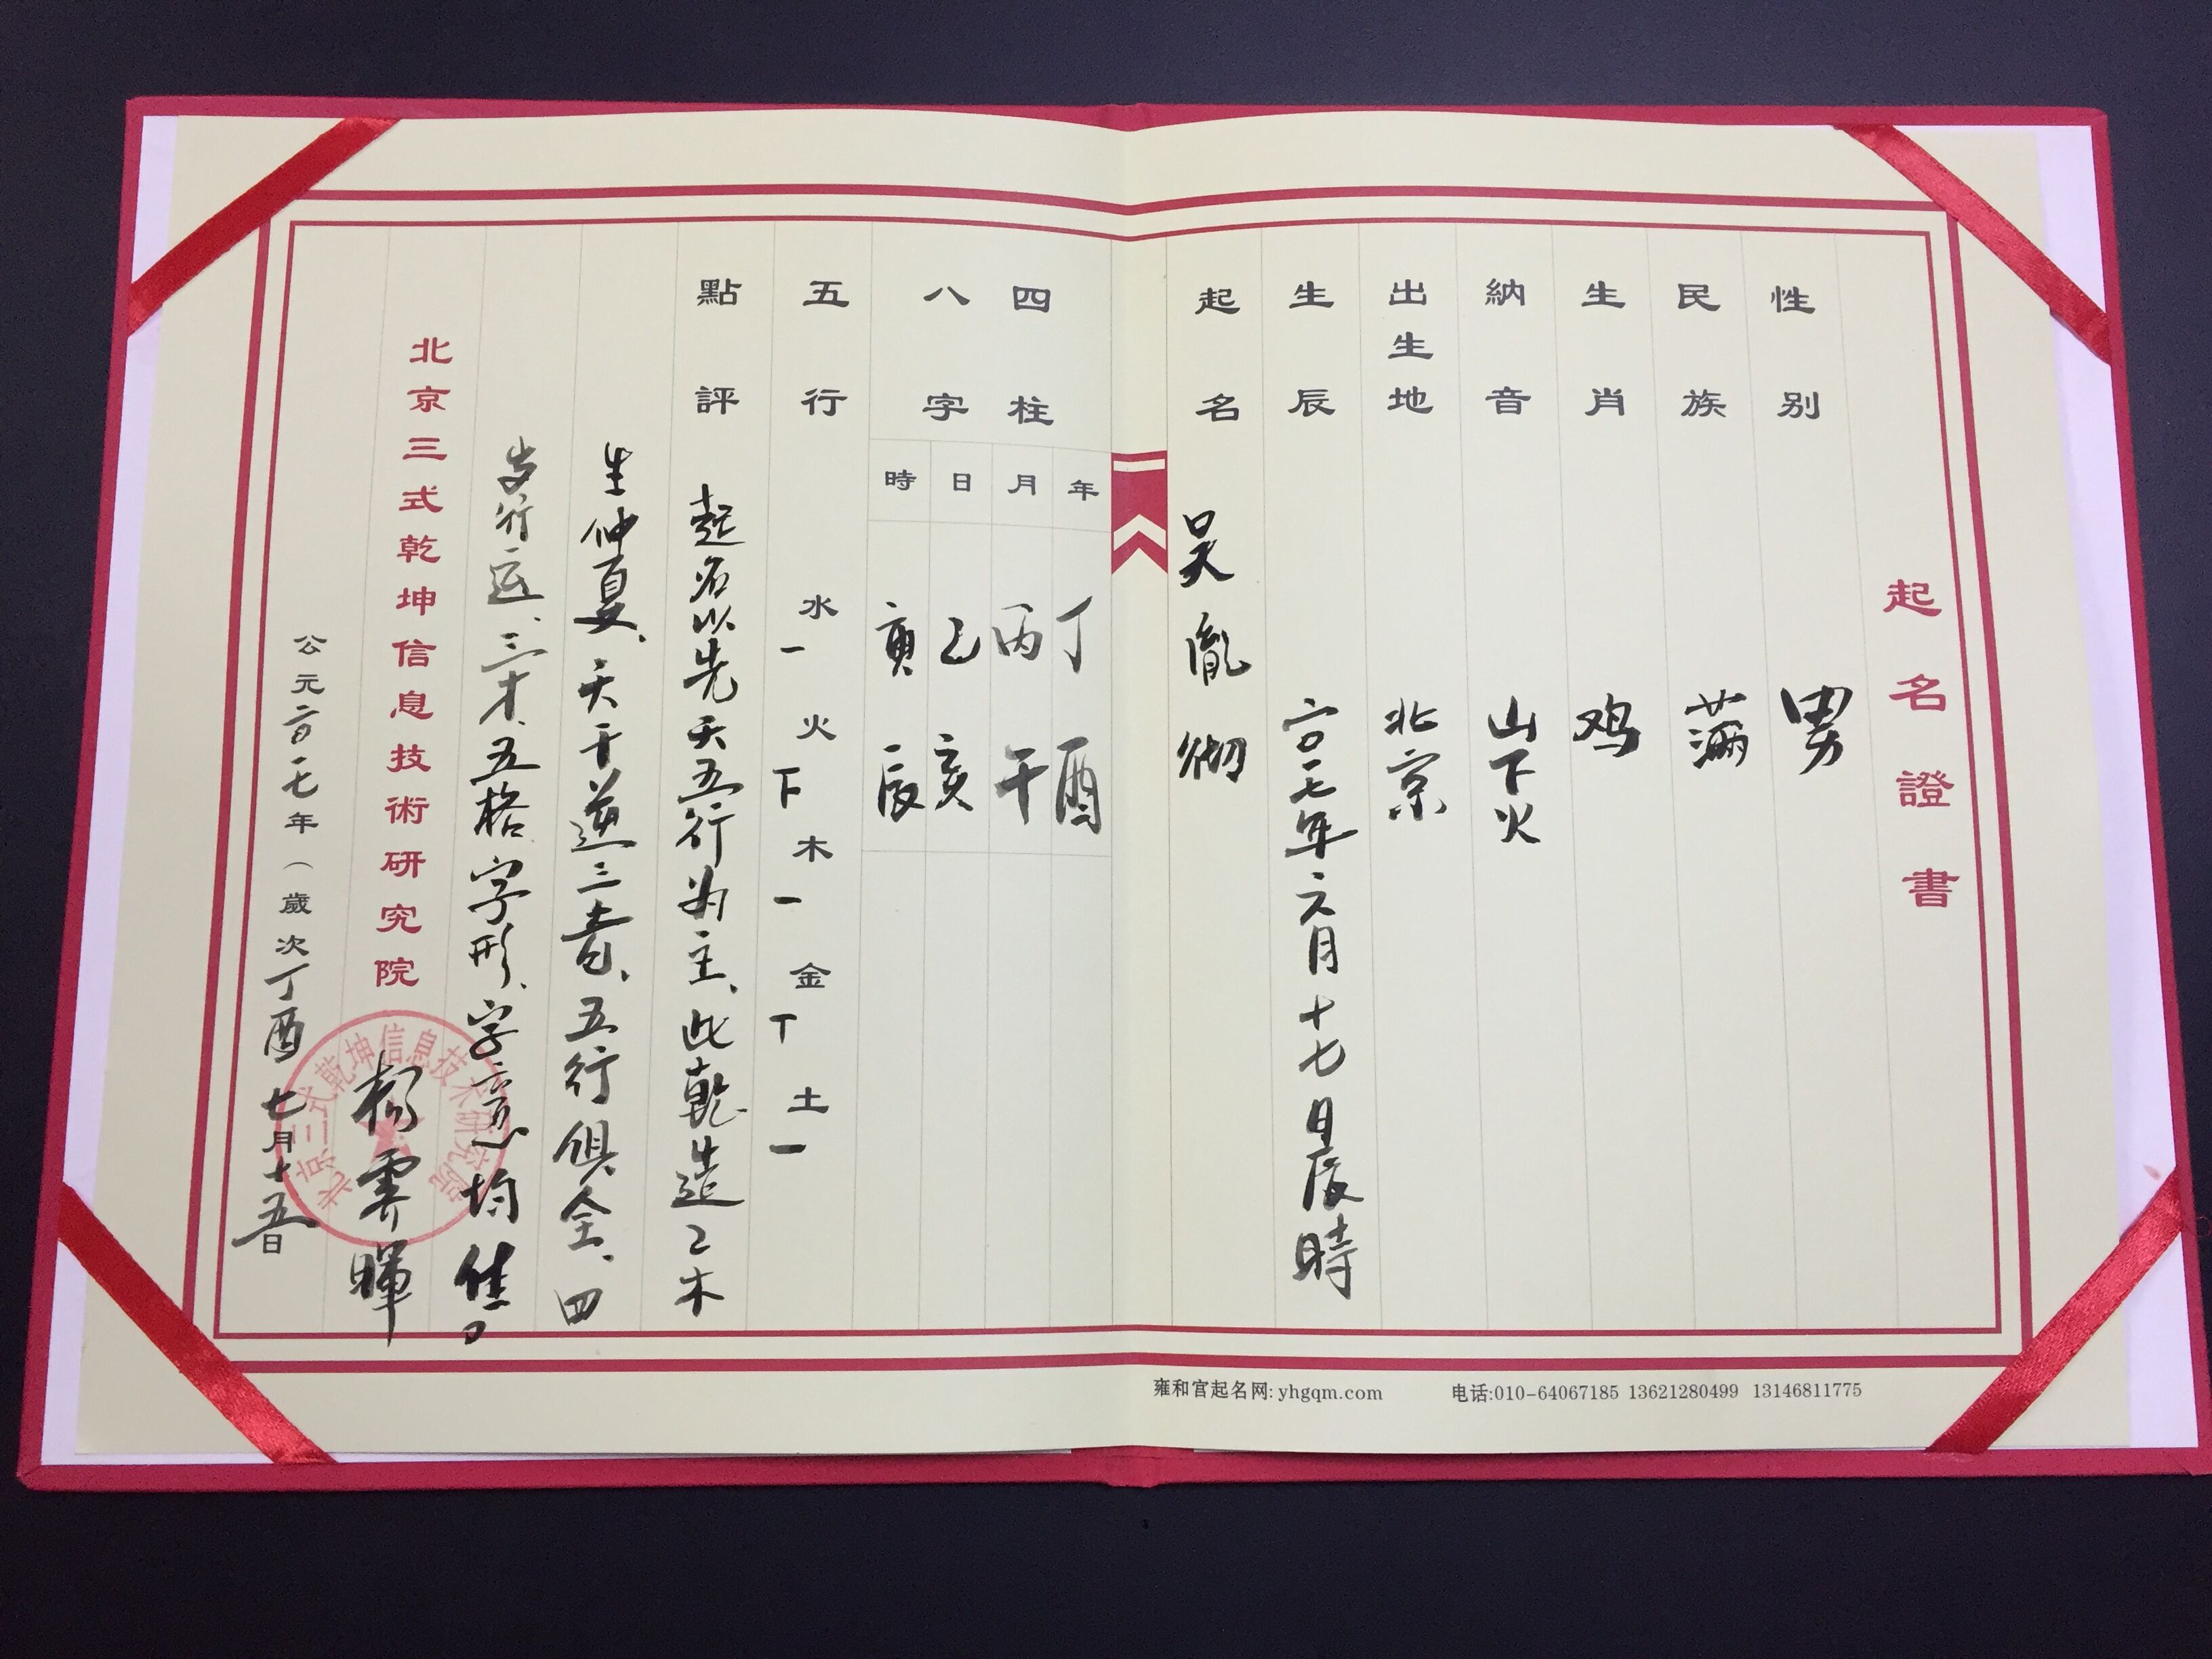 起名證書
性别 男
民族 满
生肖 鸡
納音 山下火
出生地 北京
生辰 二〇一七年六月十七日辰時
起名 吴胤彻
四柱
八字
年 丁酉
月 丙午
日 乙亥
時 庚辰
五行 水一 火下 木一 金丅 土一
點評 起名以先天五行为主、此乾造乙木
生仲夏、天干透三者、五行俱全、四
岁行运、三才、五格、字形、字意均佳。
北京三式乾坤信息技術研究院
杨霁暉
公元二〇一七年(歲次丁酉 七月十五日
北京三式乾坤信息技术研究院
雍和宫起名网: yhgqm.com
电话:010-64067185 13621280499 13146811775